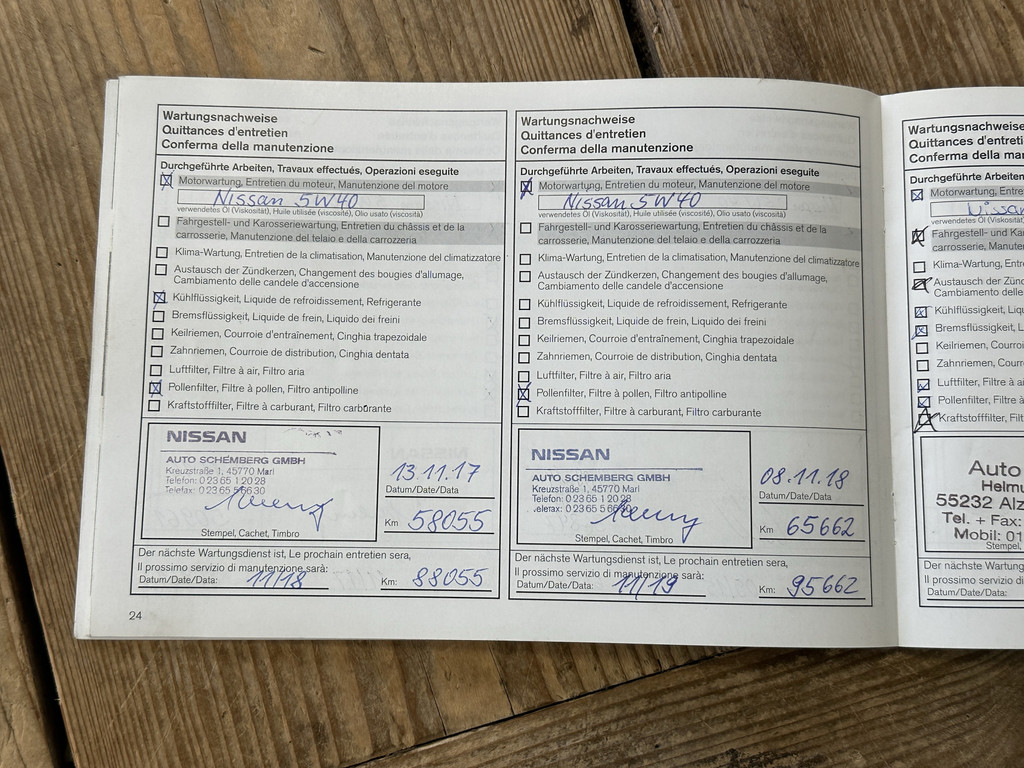 Wartungsnachweise
Quittances d'entretien
Conferma della manutenzione
Durchgeführte Arbeiten, Travaux effectués, Operazioni eseguite
Motorwartung, Entretien du moteur, Manutenzione del motore
Nissan 5W40
verwendetes Öl (Viskosität), Huile utilisée (viscosité), Olio usato (viscosità)
Fahrgestell- und Karosseriewartung, Entretien du châssis et de la
carrosserie, Manutenzione del telaio e della carrozzeria
Klima-Wartung, Entretien de la climatisation, Manutenzione del climatizzatore
Austausch der Zündkerzen, Changement des bougies d'allumage,
Cambiamento delle candele d'accensione
Kühlflüssigkeit, Liquide de refroidissement, Refrigerante
Bremsflüssigkeit, Liquide de frein, Liquido dei freini
Keilriemen, Courroie d'entraînement, Cinghia trapezoidale
Zahnriemen, Courroie de distribution, Cinghia dentata
Luftfilter, Filtre à air, Filtro aria
Pollenfilter, Filtre à pollen, Filtro antipolline
Kraftstofffilter, Filtre à carburant, Filtro carburante
NISSAN
AUTO SCHEMBERG GMBH
Kreuzstraße 1, 45770 Marl
Telefon: 0 23 65 1 20 28
Telefax: 0 23 65 5 66 30
Stempel, Cachet, Timbro
13.11.17
Datum/Date/Data
Km 58055
Der nächste Wartungsdienst ist, Le prochain entretien sera,
Il prossimo servizio di manutenzione sarà:
Datum/Date/Data: 11/18 Km: 88055
24
Wartungsnachweise
Quittances d'entretien
Conferma della manutenzione
Durchgeführte Arbeiten, Travaux effectués, Operazioni eseguite
Motorwartung, Entretien du moteur, Manutenzione del motore
Nissan 5W40
verwendetes Öl (Viskosität), Huile utilisée (viscosité), Olio usato (viscosità)
Fahrgestell- und Karosseriewartung, Entretien du châssis et de la
carrosserie, Manutenzione del telaio e della carrozzeria
Klima-Wartung, Entretien de la climatisation, Manutenzione del climatizzatore
Austausch der Zündkerzen, Changement des bougies d'allumage,
Cambiamento delle candele d'accensione
Kühlflüssigkeit, Liquide de refroidissement, Refrigerante
Bremsflüssigkeit, Liquide de frein, Liquido dei freini
Keilriemen, Courroie d'entraînement, Cinghia trapezoidale
Zahnriemen, Courroie de distribution, Cinghia dentata
Luftfilter, Filtre à air, Filtro aria
Pollenfilter, Filtre à pollen, Filtro antipolline
Kraftstofffilter, Filtre à carburant, Filtro carburante
NISSAN
AUTO SCHEMBERG GMBH
Kreuzstraße 1, 45770 Marl
Telefon: 0 23 65 1 20 28
elefax: 0 23 65 5 66 30
Stempel, Cachet, Timbro
08.11.18
Datum/Date/Data
Km 65662
Der nächste Wartungsdienst ist, Le prochain entretien sera,
Il prossimo servizio di manutenzione sarà:
Datum/Date/Data: 11/19 Km: 95662
Wartungsnachweise
Quittances d'entreti
Conferma della ma
Durchgeführte Arbeiten
Motorwartung, Entre
Nissan
verwendetes Öl (Visk
Fahrgestell- und Kar
carrosserie, Manute
Klima-Wartung, Entr
Austausch der Zünd
Cambiamento delle
Kühlflüssigkeit, Liqu
Bremsflüssigkeit, L
Keilriemen, Courro
Zahnriemen, Cour
Luftfilter, Filtre à a
Pollenfilter, Filtre
Kraftstofffilter, Filt
Auto
Helmu
55232 Alz
Tel. + Fax:
Mobil: 01
Stempel,
Der nächste Wartung
Il prossimo servizio di
Datum/Date/Data: